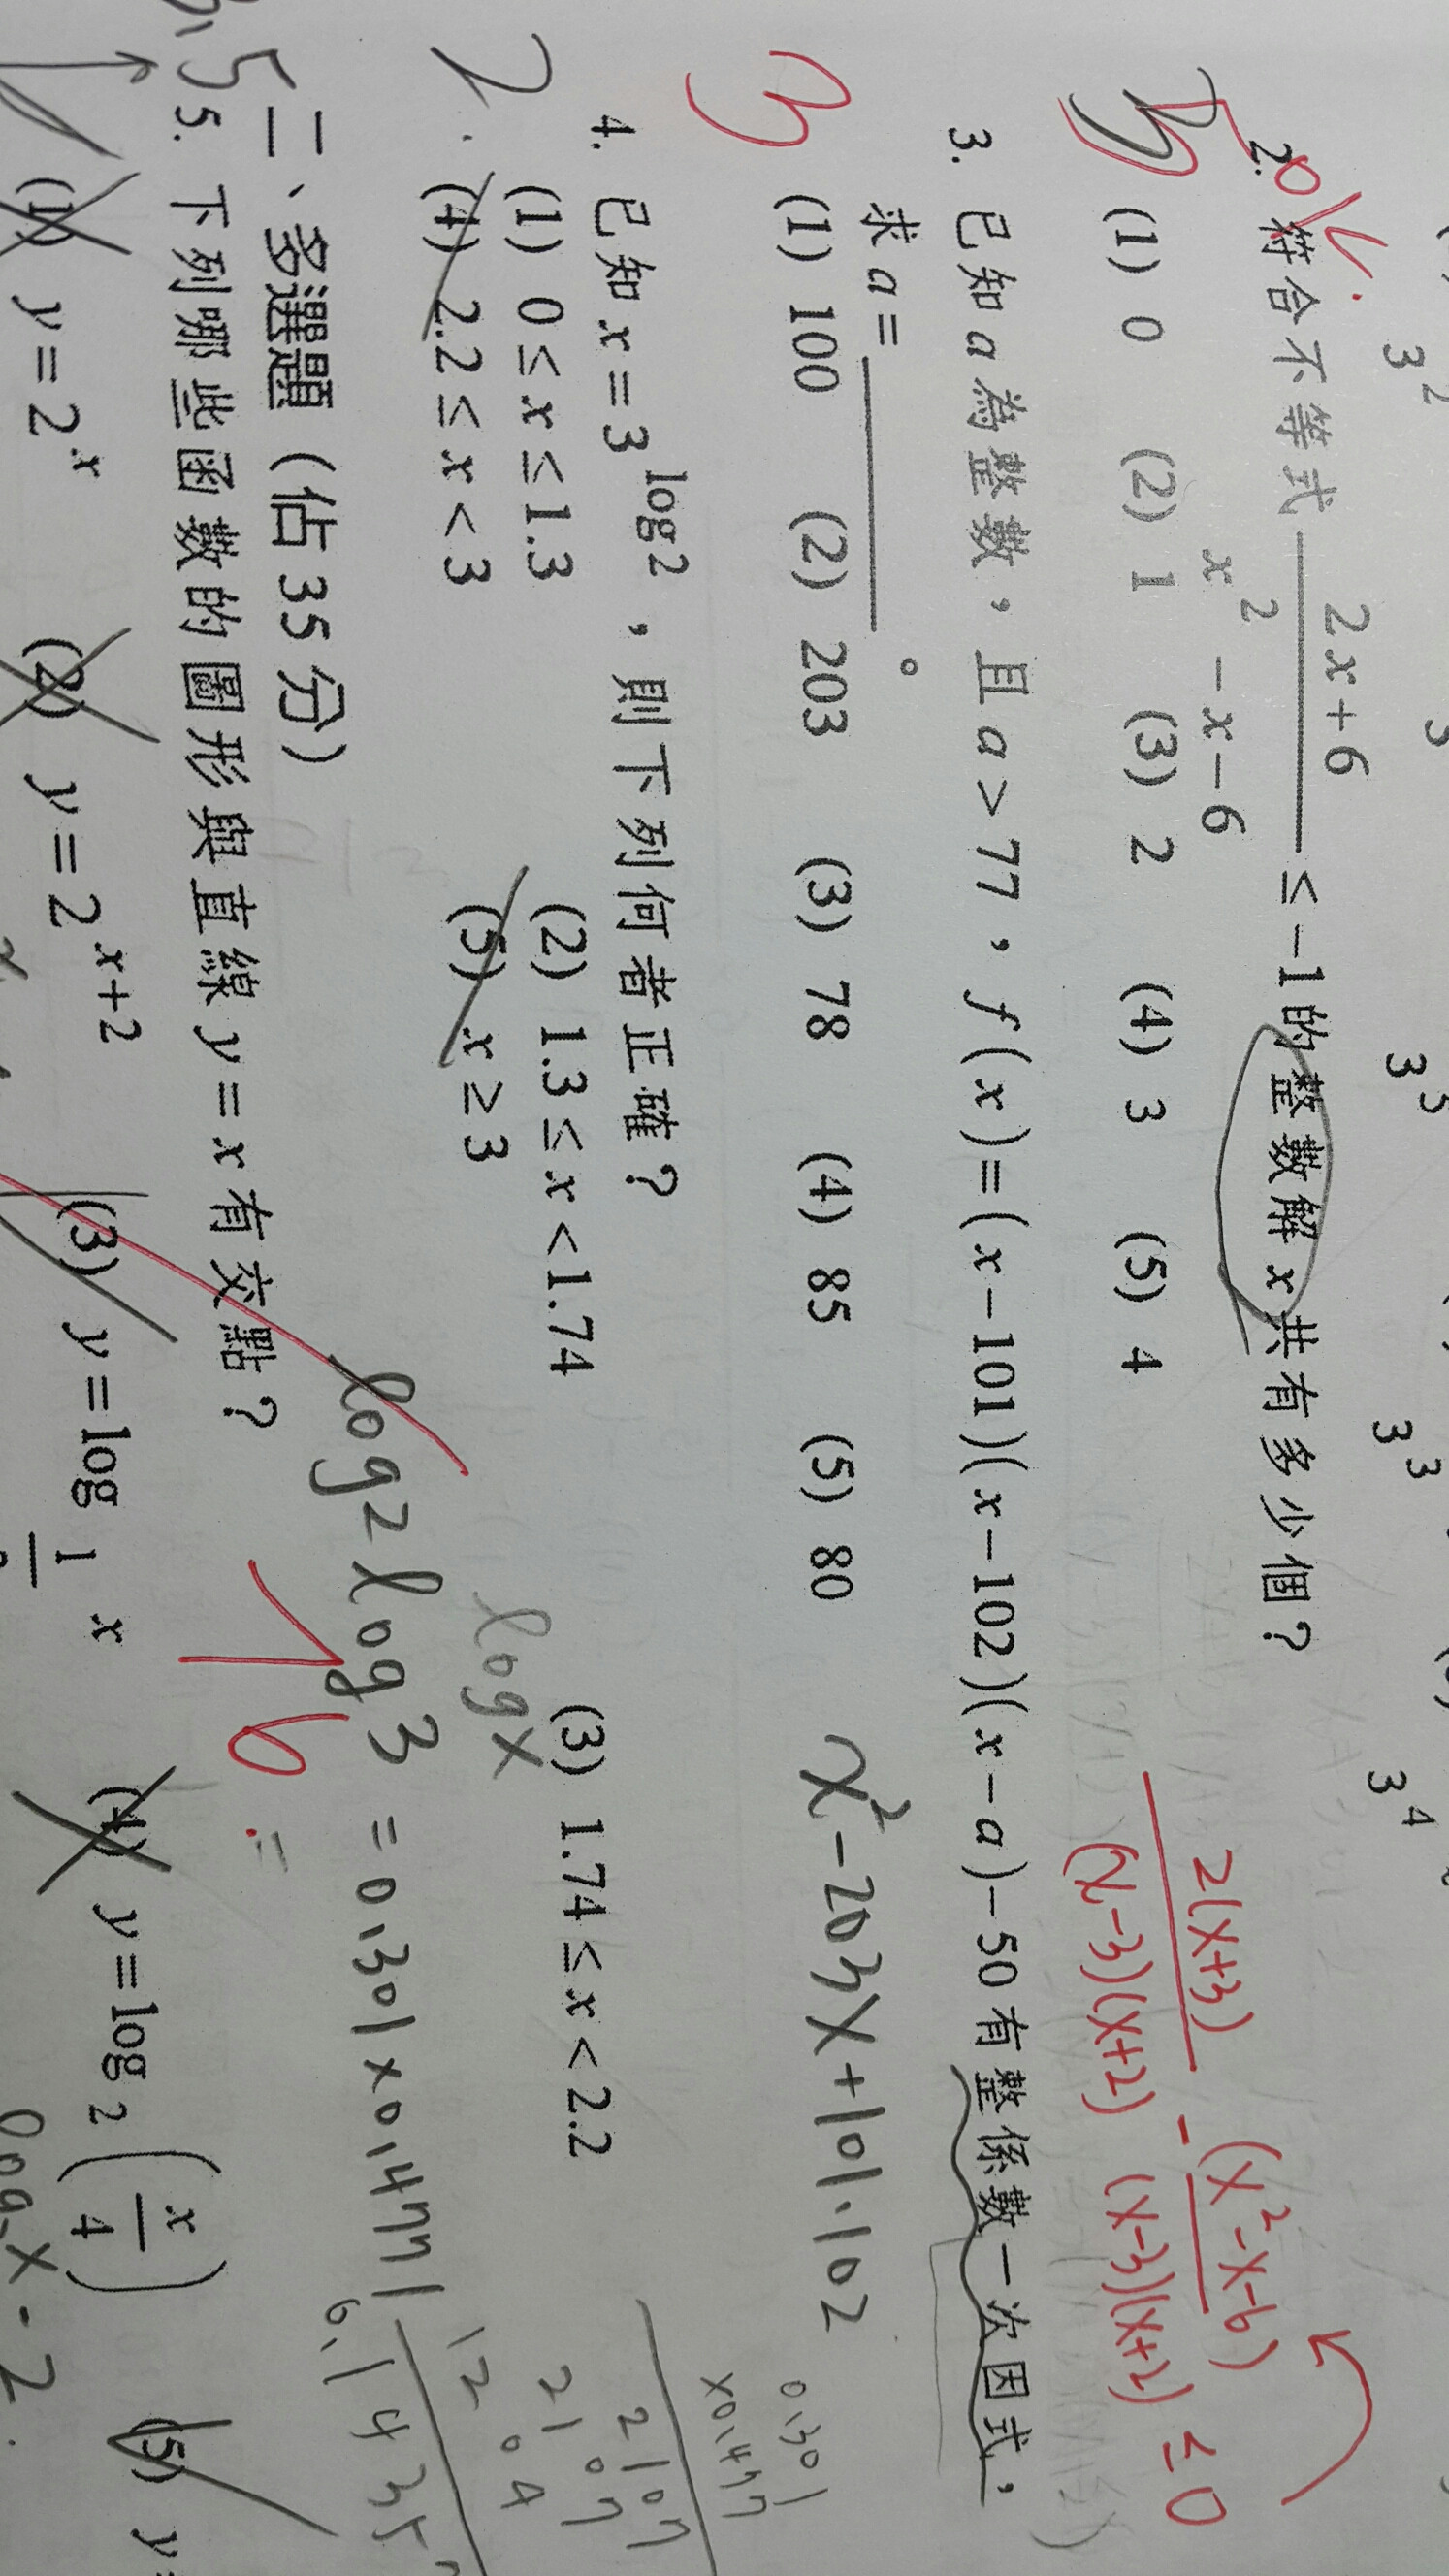 3² 3⁵ 3³ 3⁴
2. 符合不等式 (2x+6)/(x²-x-6) ≤ -1 的整數解 x 共有多少個？
(1) 0 (2) 1 (3) 2 (4) 3 (5) 4
2(x+3)/(x-3)(x+2) - (x²-x-6)/(x-3)(x+2) ≤ 0
3. 已知 a 為整數，且 a > 77，f(x)=(x-101)(x-102)(x-a)-50 有整係數一次因式，
求 a = ______。
3
(1) 100 (2) 203 (3) 78 (4) 85 (5) 80
x²-203x+101·102
4. 已知 x = 3^(log2)，則下列何者正確？
2.
(1) 0 ≤ x ≤ 1.3 (2) 1.3 ≤ x < 1.74 (3) 1.74 ≤ x < 2.2
(4) 2.2 ≤ x < 3 (5) x ≥ 3
log x
log2log3 = 0.301×0.4771
0.301
×0.477
2107
2107
二、多選題（佔 35 分）
5. 下列哪些函數的圖形與直線 y = x 有交點？
(1) y = 2^x (2) y = 2^(x+2) (3) y = log x (4) y = log₂(x/4) (5) y